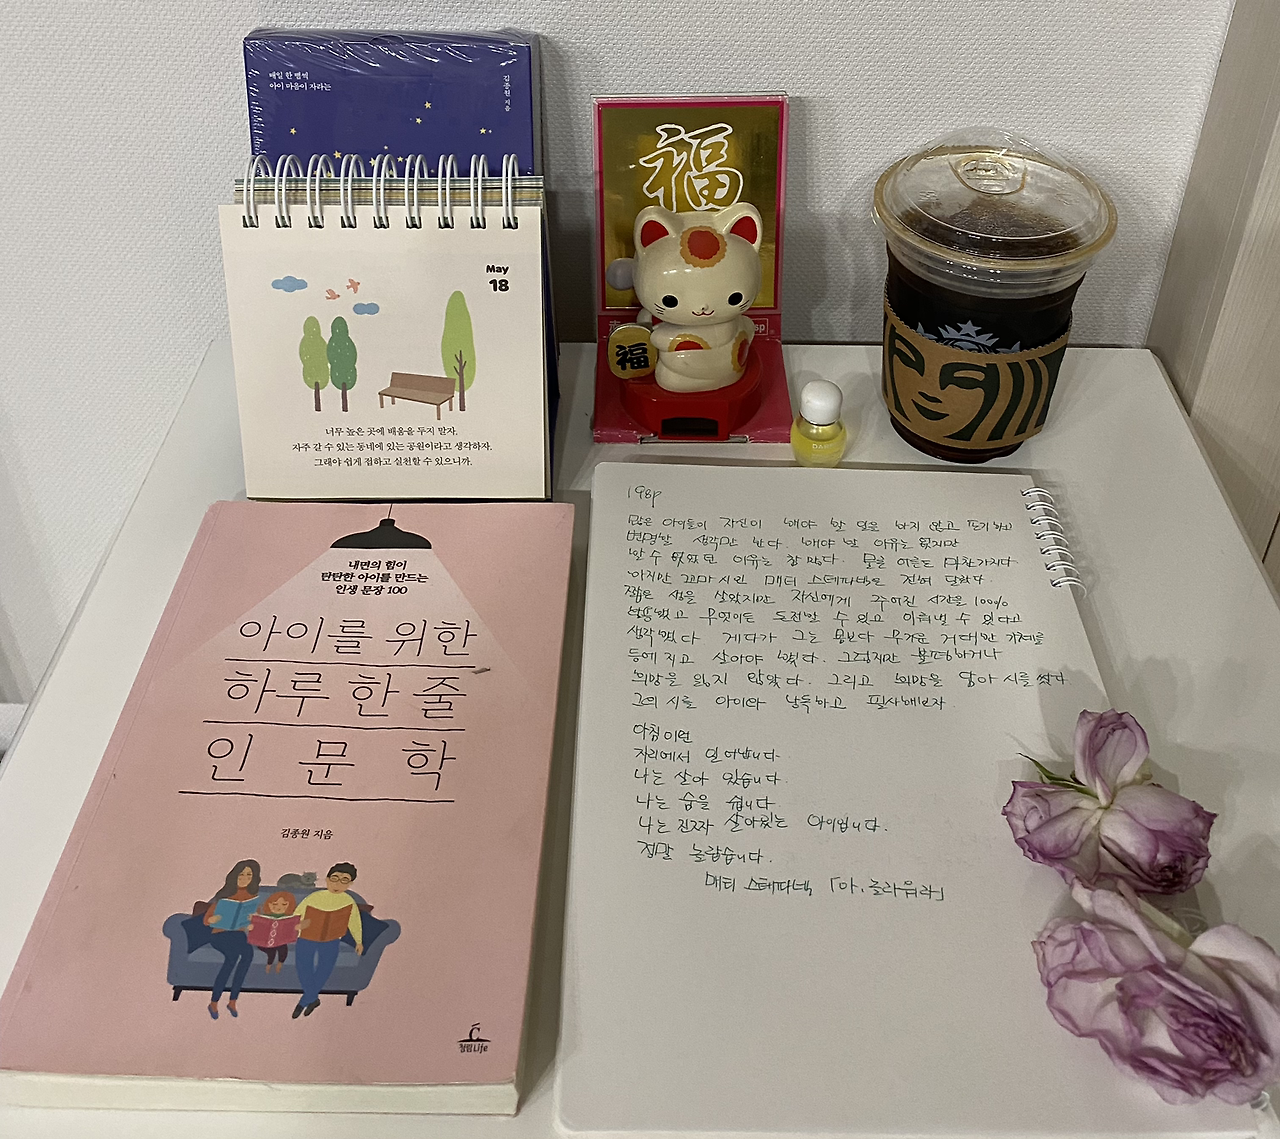 매일 한 별씩
아이 마음이 자라는
김종원 지음
May
18
너무 높은 곳에 배움을 두지 말자.
자주 갈 수 있는 동네에 있는 공원이라고 생각하자.
그래야 쉽게 접하고 실천할 수 있으니까.
福
福
내면의 힘이
탄탄한 아이를 만드는
인생 문장 100
아이를 위한
하루 한 줄
인문학
김종원 지음
청림Life
198p
많은 아이들이 자신이 해야 할 일을 하지 않고 포기하고
변명할 생각만 한다. 해야 할 이유는 없지만
할 수 없었던 이유는 참 많다. 물론 어른도 마찬가지다.
하지만 꼬마 시인 매티 스테파넥은 전혀 달랐다.
짧은 생을 살았지만 자신에게 주어진 시간을 100%
활용했고 무엇이든 도전할 수 있고 이겨낼 수 있다고
생각했다 게다가 그는 몸보다 무거운 거대한 기계를
등에 지고 살아야 했다. 그렇지만 불평하거나
희망을 잃지 않았다. 그리고 희망을 담아 시를 썼다.
그의 시를 아이와 낭독하고 필사해보자.
아침이면
자리에서 일어납니다.
나는 살아 있습니다.
나는 숨을 쉽니다
나는 진짜 살아있는 아이입니다.
정말 놀랍습니다.
매티 스테파넥 「아, 놀라워라」